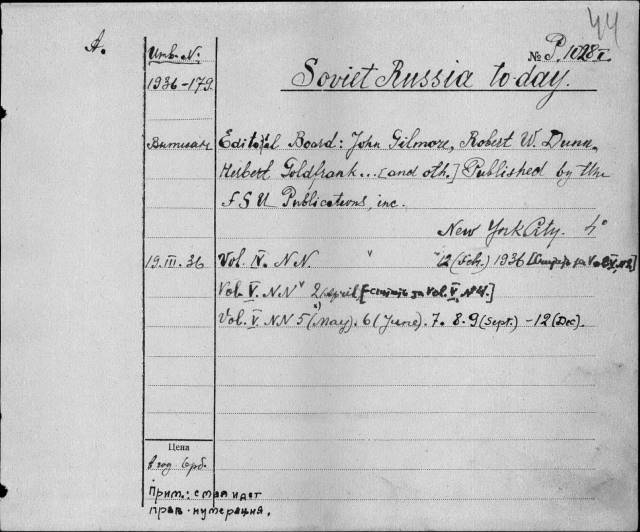 44
A.
Инв. N.
№ P. 1028 I.
1936-179.
Soviet Russia to-day.
Выписан
Editorial Board: John Gilmore, Robert W. Dunn,
Herbert Goldfrank... [and oth.] Published by the
FSU Publications, inc.
New York City. 4°
19.III.36
Vol. IV. N N. " " 12 (Feb.) 1936 [Считать за Vol. V. N 2]
Vol. V. N N " 2 April [Считать за Vol. V. N 4.]
Vol. V. N N 5 (May). 6 (June). 7. 8. 9 (Sept.) - 12 (Dec).
Цена
в год 6 рб.
Прим.: с мая идет
прав. нумерация.